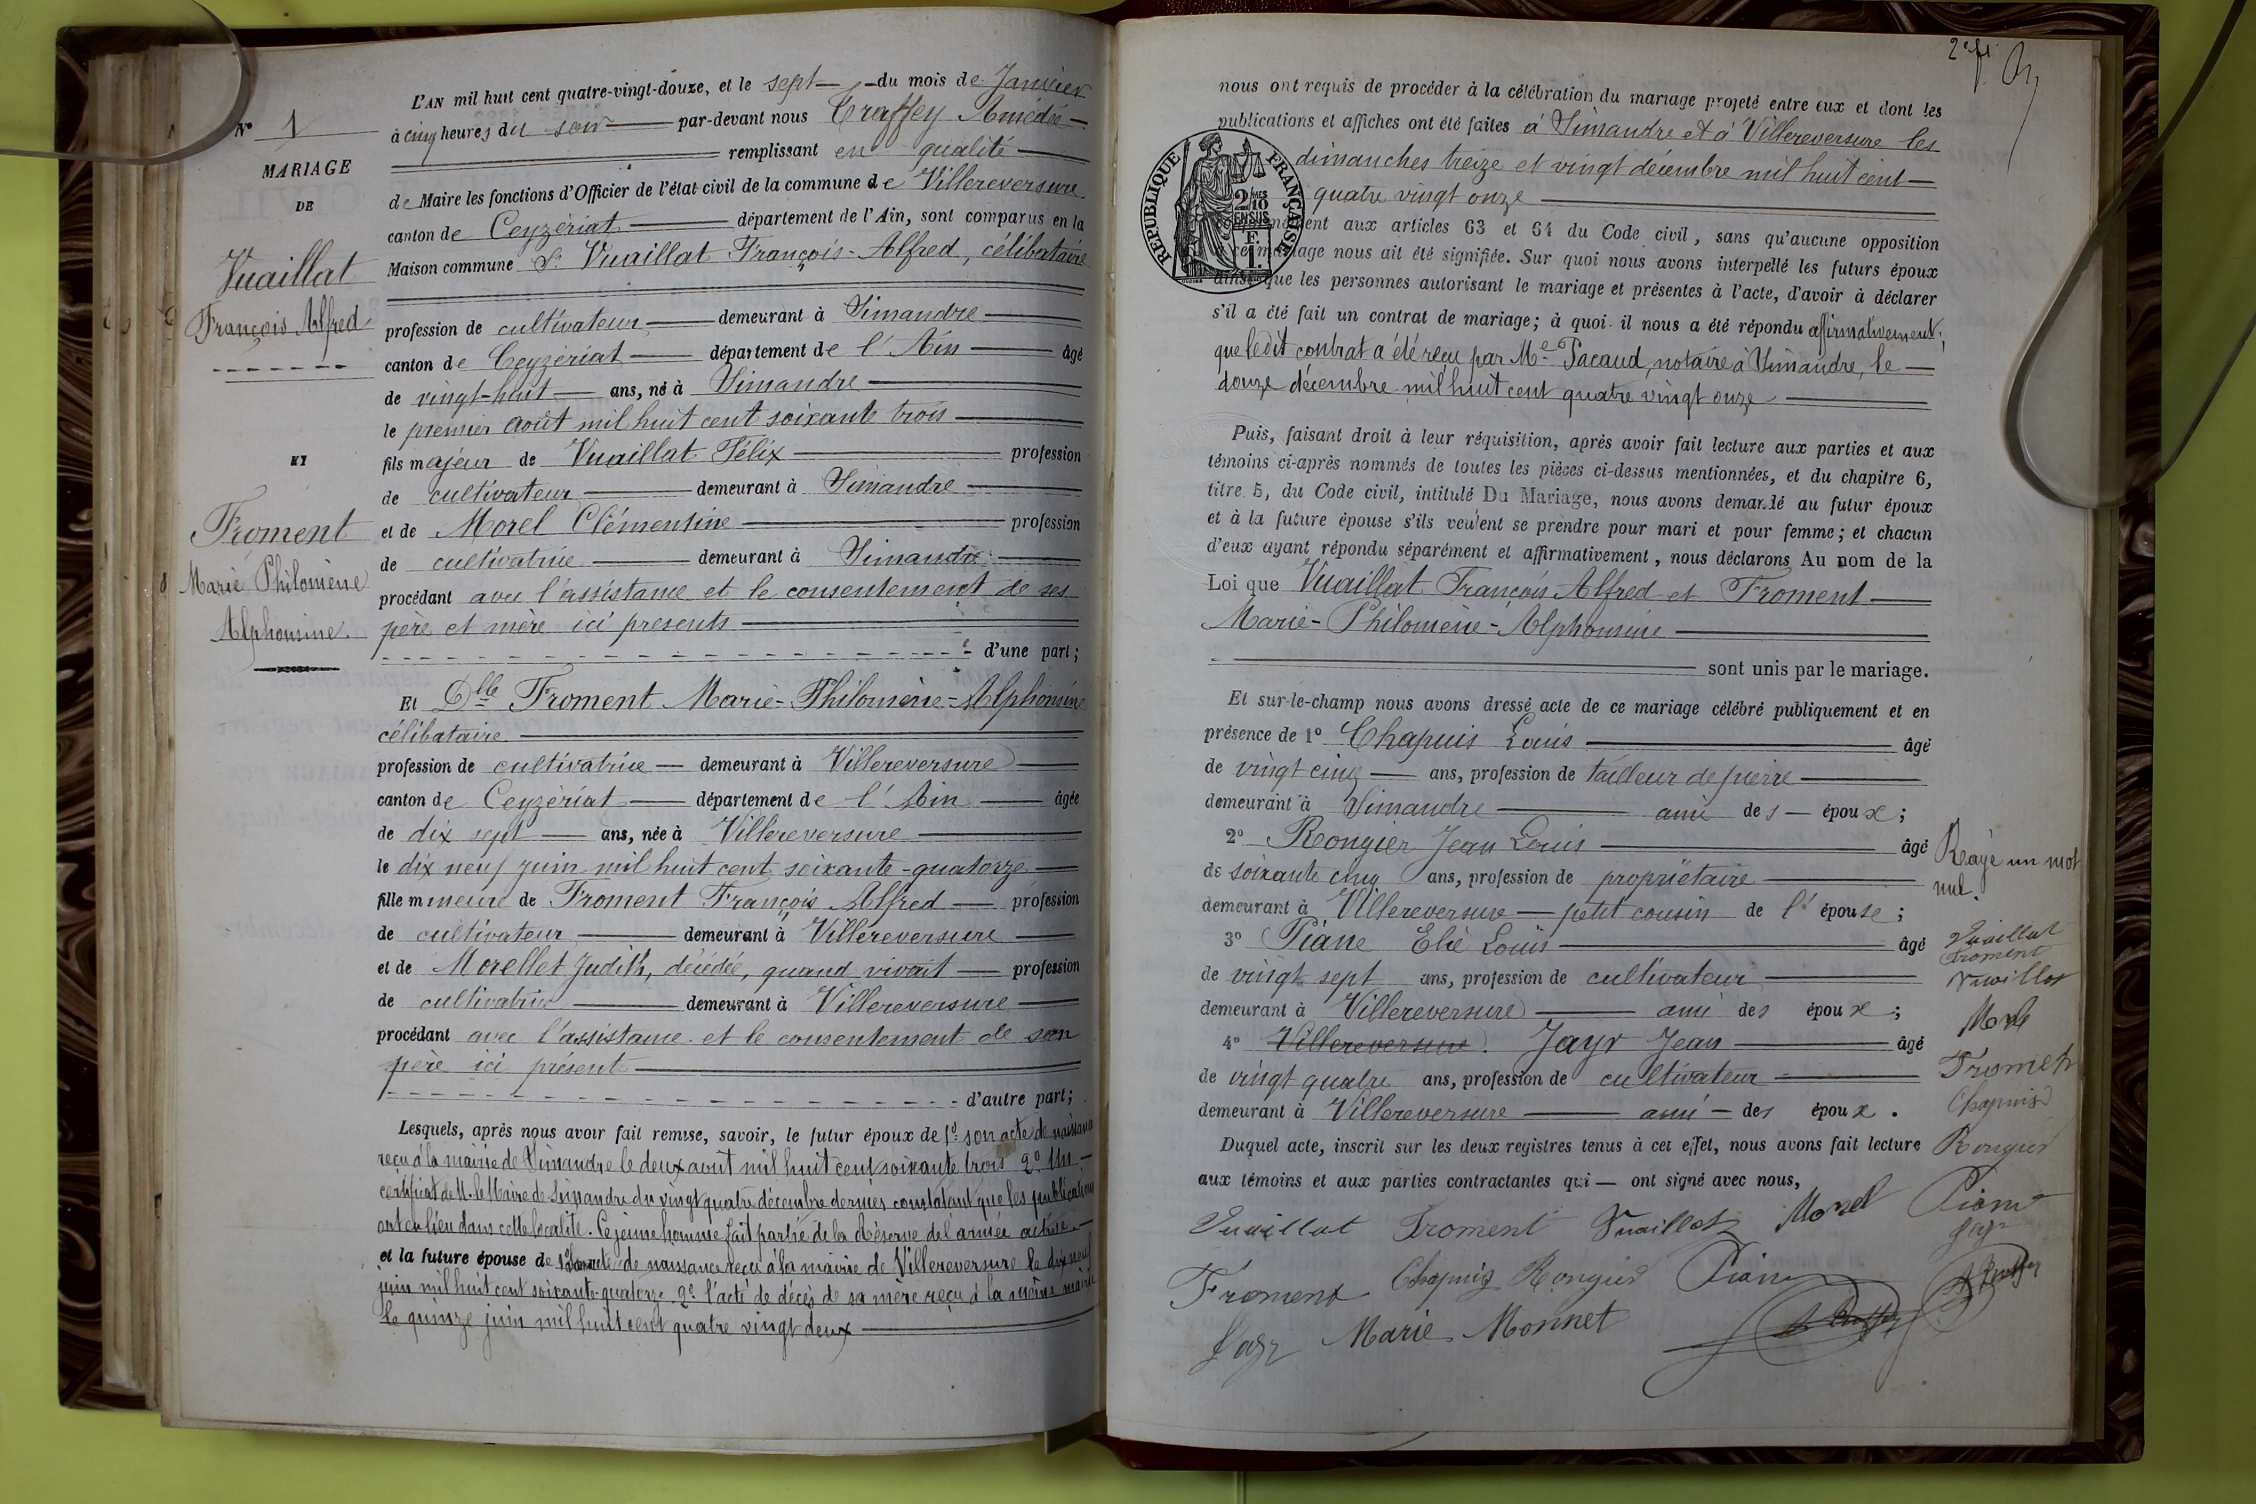 N° 1
MARIAGE
DE
Vuaillat
François Alfred
ET
Froment
Marie Philomène
Alphonsine.
L'AN mil huit cent quatre-vingt-douze, et le sept du mois de Janvier
à cinq heures du soir par-devant nous Traffey Amédée
remplissant en qualité
de Maire les fonctions d'Officier de l'état civil de la commune de Villereversure
canton de Ceyzériat département de l'Ain, sont comparus en la
Maison commune Sr Vuaillat François-Alfred, célibataire
profession de cultivateur demeurant à Simandre
canton de Ceyzériat département de l'Ain âgé
de vingt-huit ans, né à Simandre
le premier août mil huit cent soixante trois
fils majeur de Vuaillat Félix profession
de cultivateur demeurant à Simandre
et de Morel Clémentine profession
de cultivatrice demeurant à Simandre
procédant avec l'assistance et le consentement de ses
père et mère ici présents
d'une part;
Et Dlle Froment Marie-Philomène-Alphonsine
célibataire
profession de cultivatrice demeurant à Villereversure
canton de Ceyzériat département de l'Ain âgée
de dix sept ans, née à Villereversure
le dix neuf juin mil huit cent soixante-quatorze
fille mineure de Froment François Alfred profession
de cultivateur demeurant à Villereversure
et de Morellet Judith, décédée, quand vivait profession
de cultivatrice demeurant à Villereversure
procédant avec l'assistance et le consentement de son
père ici présent
d'autre part;
Lesquels, après nous avoir fait remise, savoir, le futur époux de 1° son acte de naissance
reçu à la mairie de Simandre le deux août mil huit cent soixante trois 2° Un
certificat de M. le Maire de Simandre du vingt quatre décembre dernier constatant que les publications
ont eu lieu dans cette localité. Ce jeune homme fait partie de la Réserve de l'armée active
et la future épouse de 1° son acte de naissance reçu à la mairie de Villereversure le dix neuf
juin mil huit cent soixante-quatorze 2° l'acte de décès de sa mère reçu à la même mairie
le quinze juin mil huit cent quatre vingt deux
2e f.
nous ont requis de procéder à la célébration du mariage projeté entre eux et dont les
publications et affiches ont été faites à Simandre et à Villereversure les
dimanches treize et vingt décembre mil huit cent
quatre vingt onze
RÉPUBLIQUE FRANÇAISE
2 MES
10
EN SUS
F.
1.
conformément aux articles 63 et 64 du Code civil, sans qu'aucune opposition
à ce mariage nous ait été signifiée. Sur quoi nous avons interpellé les futurs époux
ainsi que les personnes autorisant le mariage et présentes à l'acte, d'avoir à déclarer
s'il a été fait un contrat de mariage; à quoi il nous a été répondu affirmativement;
que ledit contrat a été reçu par Me Pacaud, notaire à Simandre, le
douze décembre mil huit cent quatre vingt onze
Puis, faisant droit à leur réquisition, après avoir fait lecture aux parties et aux
témoins ci-après nommés de toutes les pièces ci-dessus mentionnées, et du chapitre 6,
titre 5, du Code civil, intitulé Du Mariage, nous avons demandé au futur époux
et à la future épouse s'ils veulent se prendre pour mari et pour femme; et chacun
d'eux ayant répondu séparément et affirmativement, nous déclarons Au nom de la
Loi que Vuaillat François Alfred et Froment
Marie-Philomène-Alphonsine
sont unis par le mariage.
Et sur-le-champ nous avons dressé acte de ce mariage célébré publiquement et en
présence de 1° Chapuis Louis âgé
de vingt cinq ans, profession de tailleur de pierre
demeurant à Simandre ami des époux;
2° Rongier Jean Louis âgé
de soixante cinq ans, profession de propriétaire
demeurant à Villereversure petit cousin de l'épouse;
3° Piane Elie Louis âgé
de vingt sept ans, profession de cultivateur
demeurant à Villereversure ami des époux;
4° Villereversure. Jayr Jean âgé
de vingt quatre ans, profession de cultivateur
demeurant à Villereversure ami des époux.
Duquel acte, inscrit sur les deux registres tenus à cet effet, nous avons fait lecture
aux témoins et aux parties contractantes qui ont signé avec nous,
Vuaillat Froment Vuaillat Morel
Froment Chapuis Rongier Piane
Jayr Marie Monnet
Rayé un mot
nul.
Vuaillat
Froment
Vuaillat
Morel
Froment
Chapuis
Rongier
Piane
Jayr